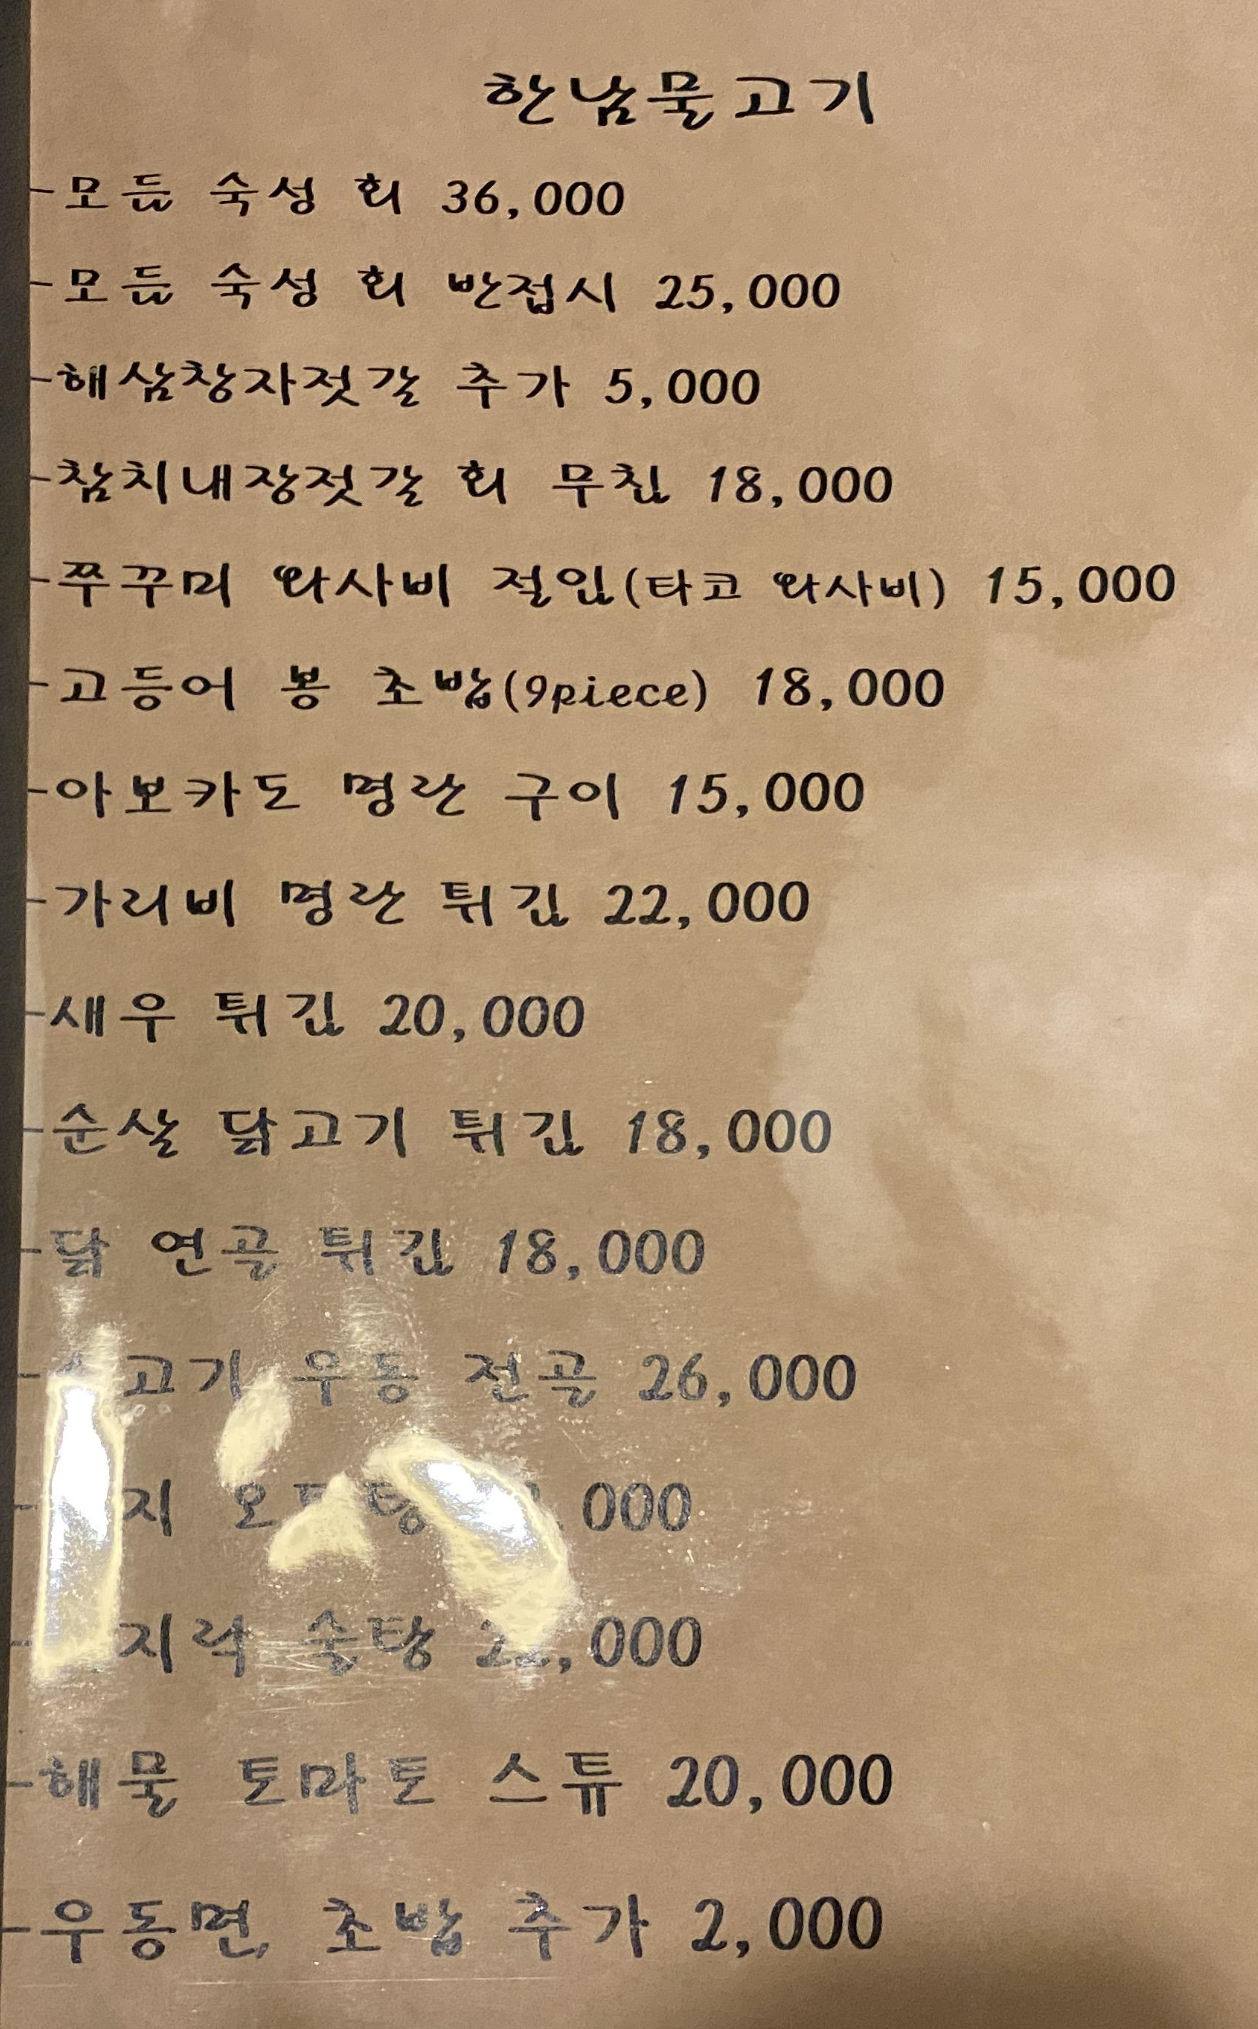 한남물고기
-모듬 숙성 회 36,000
-모듬 숙성 회 반접시 25,000
-해삼창자젓갈 추가 5,000
-참치내장젓갈 회 무침 18,000
-쭈꾸미 와사비 절임(타코 와사비) 15,000
-고등어 봉 초밥(9piece) 18,000
-아보카도 명란 구이 15,000
-가리비 명란 튀김 22,000
-새우 튀김 20,000
-순살 닭고기 튀김 18,000
-닭 연골 튀김 18,000
- 우동 전골 26,000
-
- 술탕
-해물 토마토 스튜 20,000
-우동면, 초밥 추가 2,000